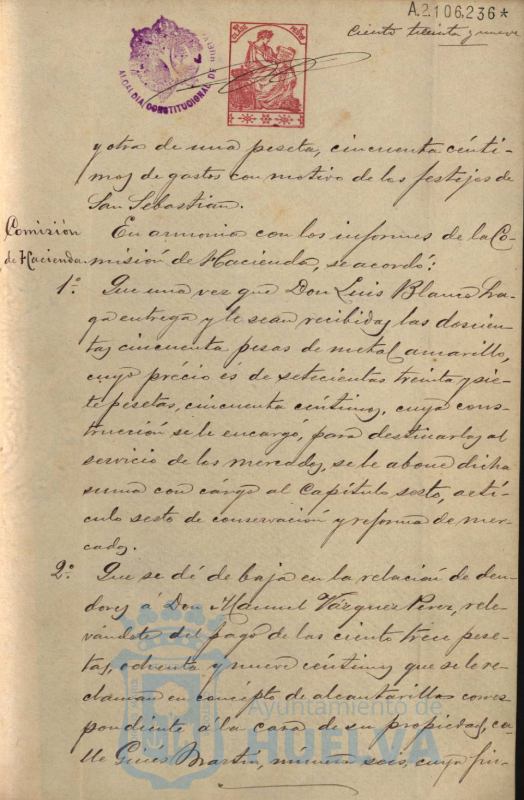 A.2.106,236*
ciento treinta y nueve
ALCALDIA CONSTITUCIONAL DE
y otra de una peseta, cincuenta cénti-
mos de gastos con motivo de los festejos de
San Sebastian.
Comisión
de Hacienda.
En armonia con los informes de la Co-
misión de Hacienda, se acordó:
1º. Que una vez que Don Luis Blanco ha-
ga entrega y le sean recibidas las doscien-
tas cincuenta pesas de metal amarillo,
cuyo precio es de setecientas treinta y sie-
te pesetas, cincuenta céntimos, cuya cons-
trucción se le encargó, para destinarlas al
servicio de los mercados, se le abone dicha
suma con cárgo al Capítulo sesto, artí-
culo sesto de conservación y reforma de mer-
cados.
2º. Que se dé de baja en la relación de deu-
dores á Don Manuel Vázquez Perez, rele-
vándole del pago de las ciento trece pese-
tas, ochenta y nueve céntimos que se le re-
claman en concepto de alcantarillas corres-
pondiente á la casa de su propiedad, ca-
lle Gines Martín, número seis, cuya fin-
Ayuntamiento de
HUELVA